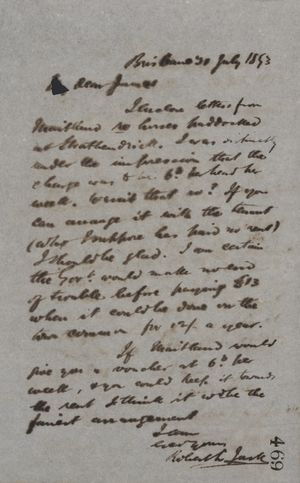 Brisbane 30 July 1893
My dear James
I enclose letter from
Maitland re horses paddocked
at Strathendrick. I was distinctly
under the impression that the
charge was to be 6d. per head per
week. Wasn't that so? If you
can arrange it with the tenant
(who I suppose has paid no rent)
I should be glad. I am certain
the Govt. would make no end
of trouble before paying £13
when it could be done on the
town common for 12/- a year.
If Maitland would
give you a voucher at 6d. per
week, & you could keep it towards
the rent I think it wd be the
fairest arrangement
I am
Ever yours
Robert L Jack
469